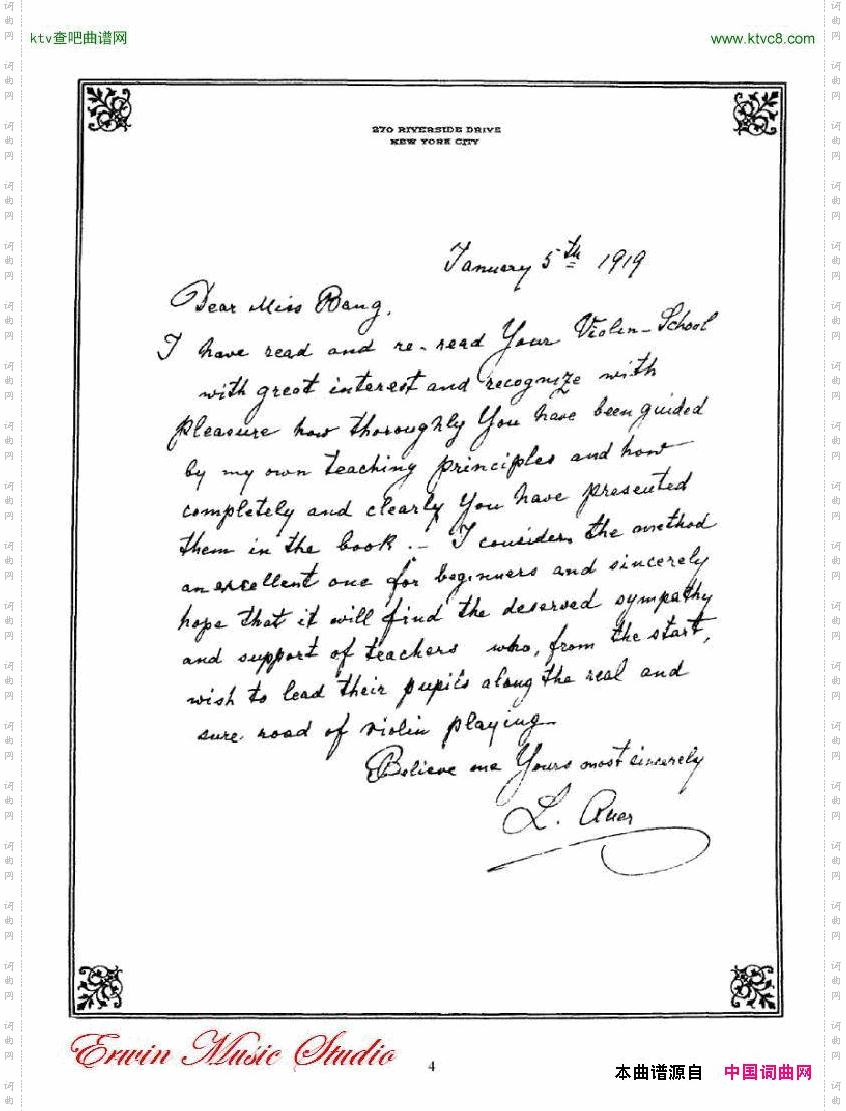 ktv查吧曲谱网
www.ktvc8.com
270 RIVERSIDE DRIVE
NEW YORK CITY
January 5th 1919
Dear Miss Bang,
I have read and re-read Your Violin-School
with great interest and recognize with
pleasure how thoroughly You have been guided
by my own teaching principles and how
completely and clearly You have presented
them in the book.- I consider the method
an excellent one for beginners and sincerely
hope that it will find the deserved sympathy
and support of teachers who, from the start,
wish to lead their pupils along the real and
sure road of violin playing
Believe me Yours most sincerely
L. Auer
Erwin Music Studio
4
本曲谱源自 中国词曲网